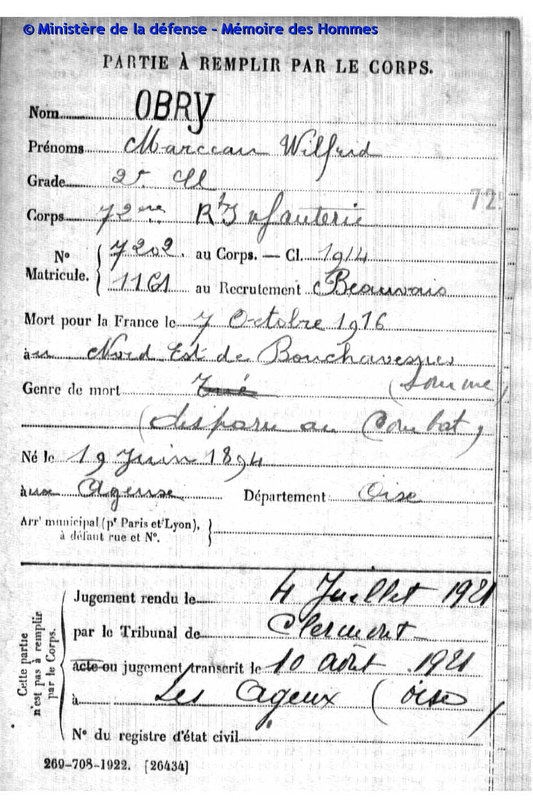 © Ministère de la défense - Mémoire des Hommes
PARTIE À REMPLIR PAR LE CORPS.
Nom OBRY
Prénoms Marceau Wilfrid
Grade 2e Cl
Corps 72ème Rt Infanterie
72
N° Matricule. { 7202. au Corps. — Cl. 1914
1161 au Recrutement Beauvais
Mort pour la France le 7 Octobre 1916
à au Nord Est de Bouchavesnes
(Somme)
Genre de mort Tué
(disparu au Combat)
Né le 19 Juin 1894
à aux Ageux Département Oise
Arrt municipal (pr Paris et Lyon),
à défaut rue et N°. }
Cette partie
n'est pas à remplir
par le Corps.
Jugement rendu le 4 Juillet 1921
par le Tribunal de Clermont
acte ou jugement transcrit le 10 août 1921
à Les Ageux (Oise)
N° du registre d'état civil
269-708-1922. [26434]